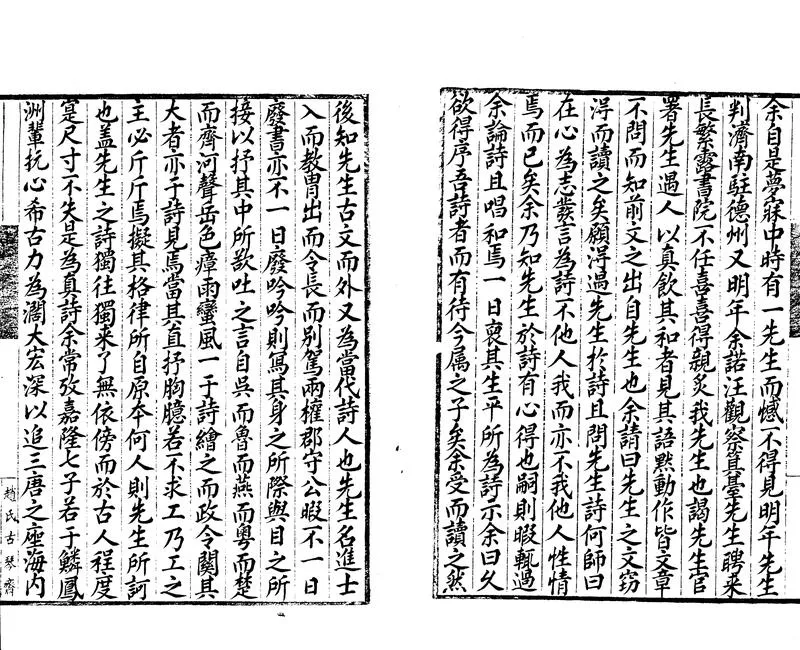 余自是夢寐中時有一先生而憾不得見明年先生
判濟南駐德州又明年余諾汪觀察箕臺先生聘来
長繁露書院不任喜喜得親炙我先生也謁先生官
署先生遇人以真飲其和者見其語黙動作皆文章
不問而知前文之出自先生也余請曰先生之文窃
淂而讀之矣顧淂過先生於詩且問先生詩何師曰
在心為志發言為詩不他人我而亦不我他人性情
焉而已矣余乃知先生於詩有心得也嗣則暇輒過
余論詩且唱和焉一日裒其生平所為詩示余曰久
欲得序吾詩者而有待今属之子矣余受而讀之然
後知先生古文而外又為當代詩人也先生名進士
入而教胄出而令長而别駕兩權郡守公暇不一日
廢書亦不一日廢吟吟則寫其身之所際與目之所
接以抒其中所欲吐之言自吳而魯而燕而粤而楚
而齊河聲岳色瘴雨蠻風一于詩繪之而政令關其
大者亦于詩見焉當其直抒胸臆若不求工乃工之
主必斤斤焉擬其格律所自原夲何人則先生所訶
也盖先生之詩獨往獨来了無依傍而於古人程度
寔尺寸不失是為真詩余常攷嘉隆七子若于鱗鳳
洲輩抗心希古力為濶大宏深以追三唐之座海内
趙氏古琴齋